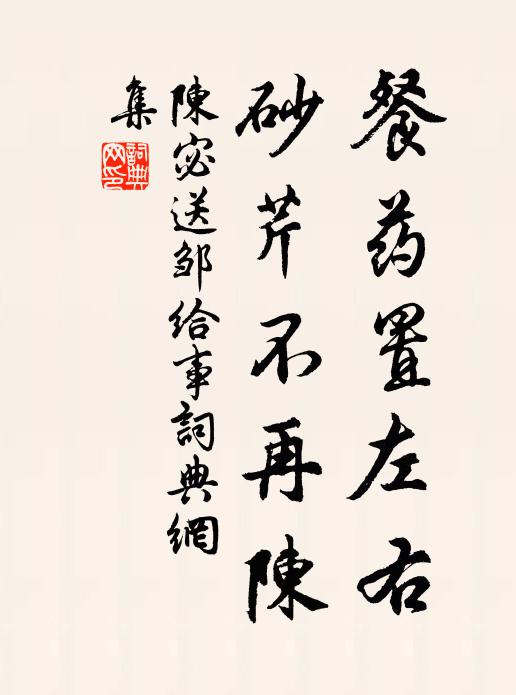 餐药置左右
砂芹不再陳
陳宓送邹给事詞典網
集
詞典
网印